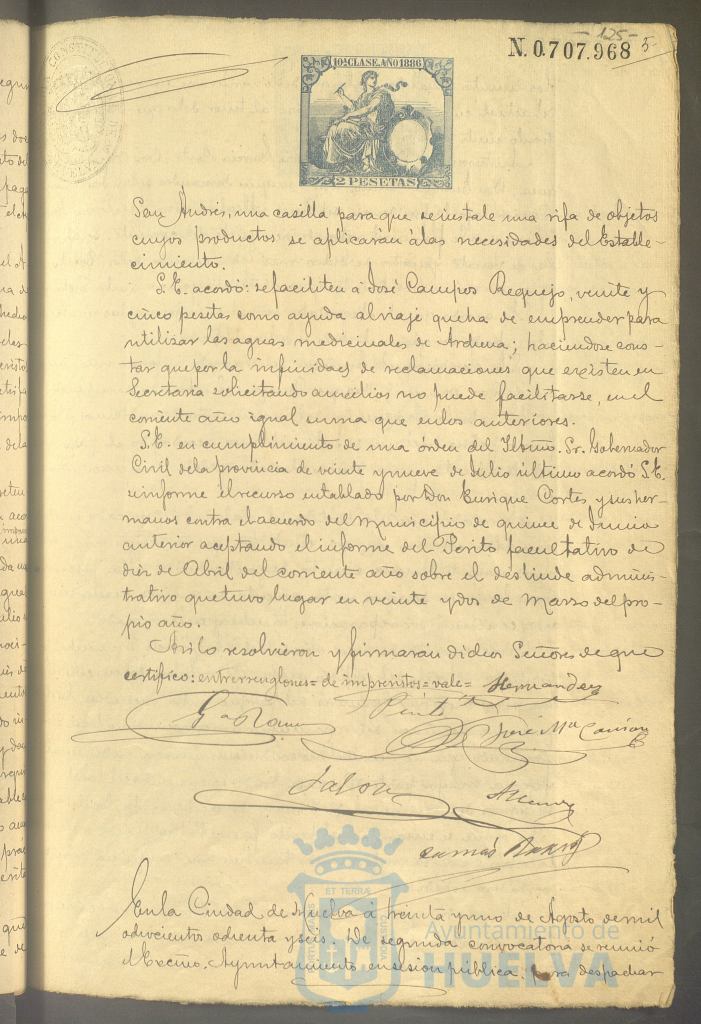 -125-
N. 0.707.968 5-
10ª CLASE. AÑO 1886
2 PESETAS
San Andrés, una casilla para que se instale una rifa de objetos
cuyos productos se aplicarán á las necesidades del Estable-
cimiento.
S.E. acordó: se faciliten á José Campos Requejo, veinte y
cinco pesetas como ayuda al viaje que ha de emprender para
utilizar las aguas medicinales de Archena; haciendose cons-
tar que por la infinidad de reclamaciones que existen en
Secretaria solicitando aucilios no puede facilitarse, en el
corriente año igual suma que en los anteriores.
S.E. en cumplimiento de una órden del Iltmo. Sr. Gobernador
Civil de la provincia de veinte y nueve de Julio último acordó S.E.
informe el recurso entablado por Don Enrique Cortes y sus her-
manos contra el acuerdo del Municipio de quince de Junio
anterior aceptando el informe del Perito facultativo de
diez de Abril del corriente año sobre el deslinde adminis-
trativo que tuvo lugar en veinte y dos de Marzo del pro-
pio año.
Asi lo resolvieron y firmarán dichos Señores de que
certifico: entrerrenglones= de imprevistos= vale= Hernandez
Gª Ramos Pinto José Mª
Jalon
En la Ciudad de Huelva á treinta y uno de Agosto de mil
ochocientos ochenta y seis. De segunda convocatoria se reunió
el Excmo. Ayuntamiento en sesion pública para despachar
ET TERRAE
PORTUS MARIS
CUSTODIA
Ayuntamiento de
HUELVA